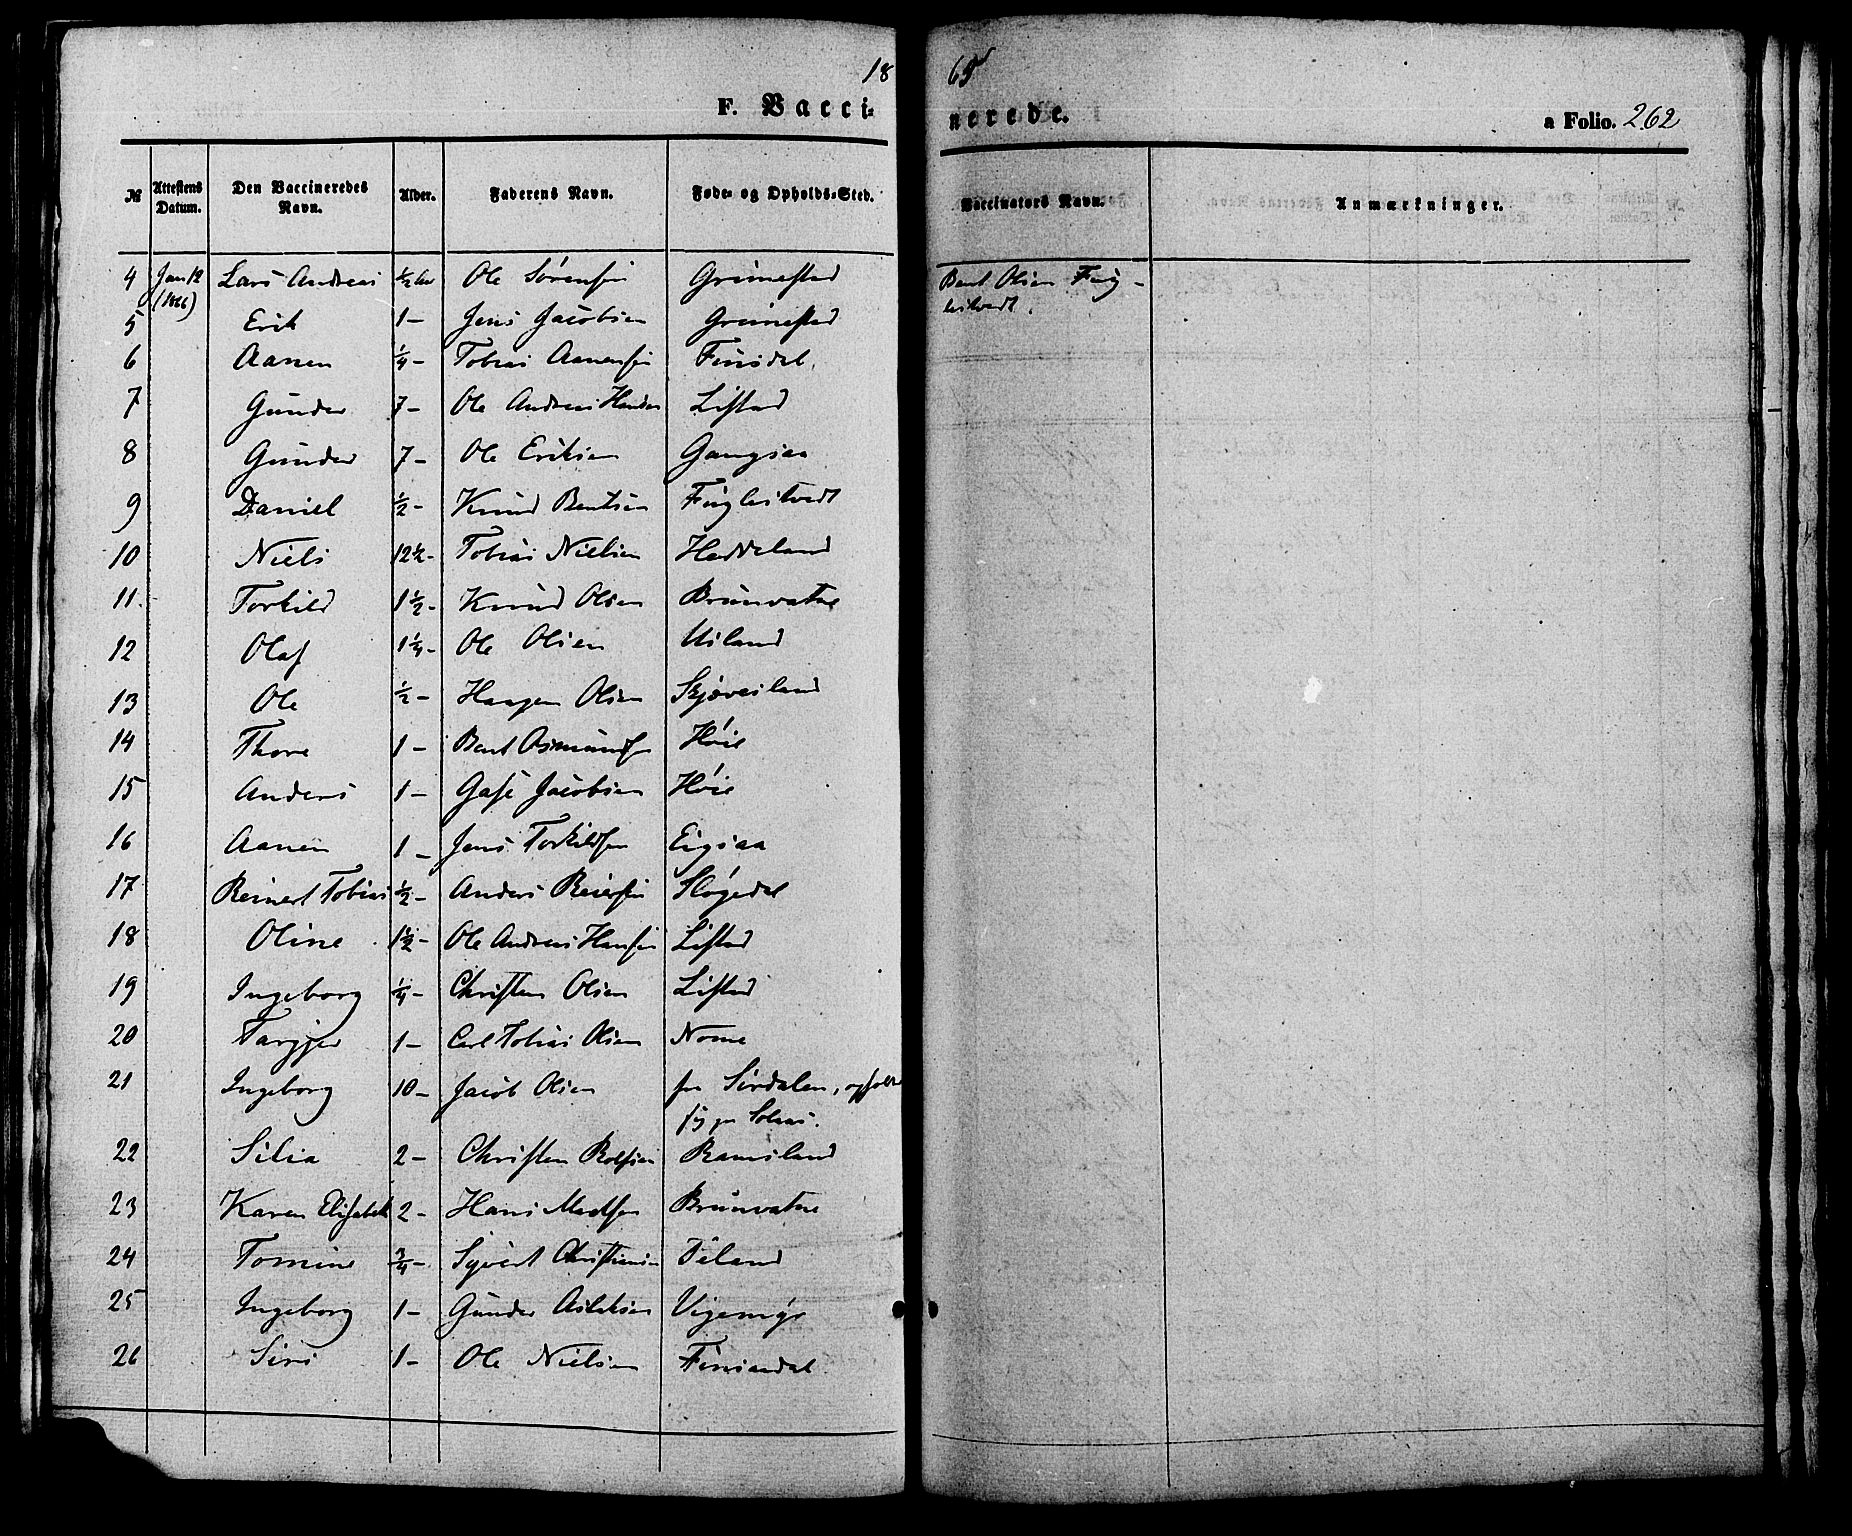 18 65
F. Vaccinerede. a Folio. 262
№ Attestens Datum. Den Vaccineredes Navn. Alder. Faderens Navn. Føde- og Opholds-Sted. Vaccinators Navn. Anmærkninger.
4 Jan 12 (1866) Lars Andreas ½ Ole Sørensen Grimestad Bent Olsen Fuglestvedt.
5 Erik 1 – Jens Jacobsen Grimestad
6 Aanen ¼ – Tobias Aanensen Finsdal.
7 Gunder 7 – Ole Andreas Hansen Lifstad
8 Gunder 7 – Ole Eriksen Gangsaa
9 Daniel ½ – Knud Bentsen Fuglestvedt
10 Niels 12½ – Tobias Nielsen Haddeland
11 Torkild 1½ – Knud Olsen Brunvatne
12 Olaf 1¼ – Ole Olsen Usland
13 Ole ½ – Haagen Olsen Skjøvesland
14 Thore 1 – Bent Osmundsen Høie
15 Anders 1 – Gase Jacobsen Høie
16 Aanen 1 – Jens Torkildsen Eigsaa
17 Reinert Tobias ½ – Anders Reiersen Sløgedal
18 Oline 1½ – Ole Andreas Hansen Lifstad
19 Ingeborg ¼ – Christen Olsen Lifstad
20 Targjer 1 – Carl Tobias Olsen Nome
21 Ingeborg 10 – Jacob Olsen fra Sirdalen,
22 Silia 2 – Christen Ramsland
23 Karen Elisabeth 2 – Hans Madsen Brunvatne
24 Tomine ¾ – Syvert Christensen
25 Ingeborg 1 – Gunder Aslaksen Vigemyr
26 Siri 1 – Ole Nielsen Finsandal